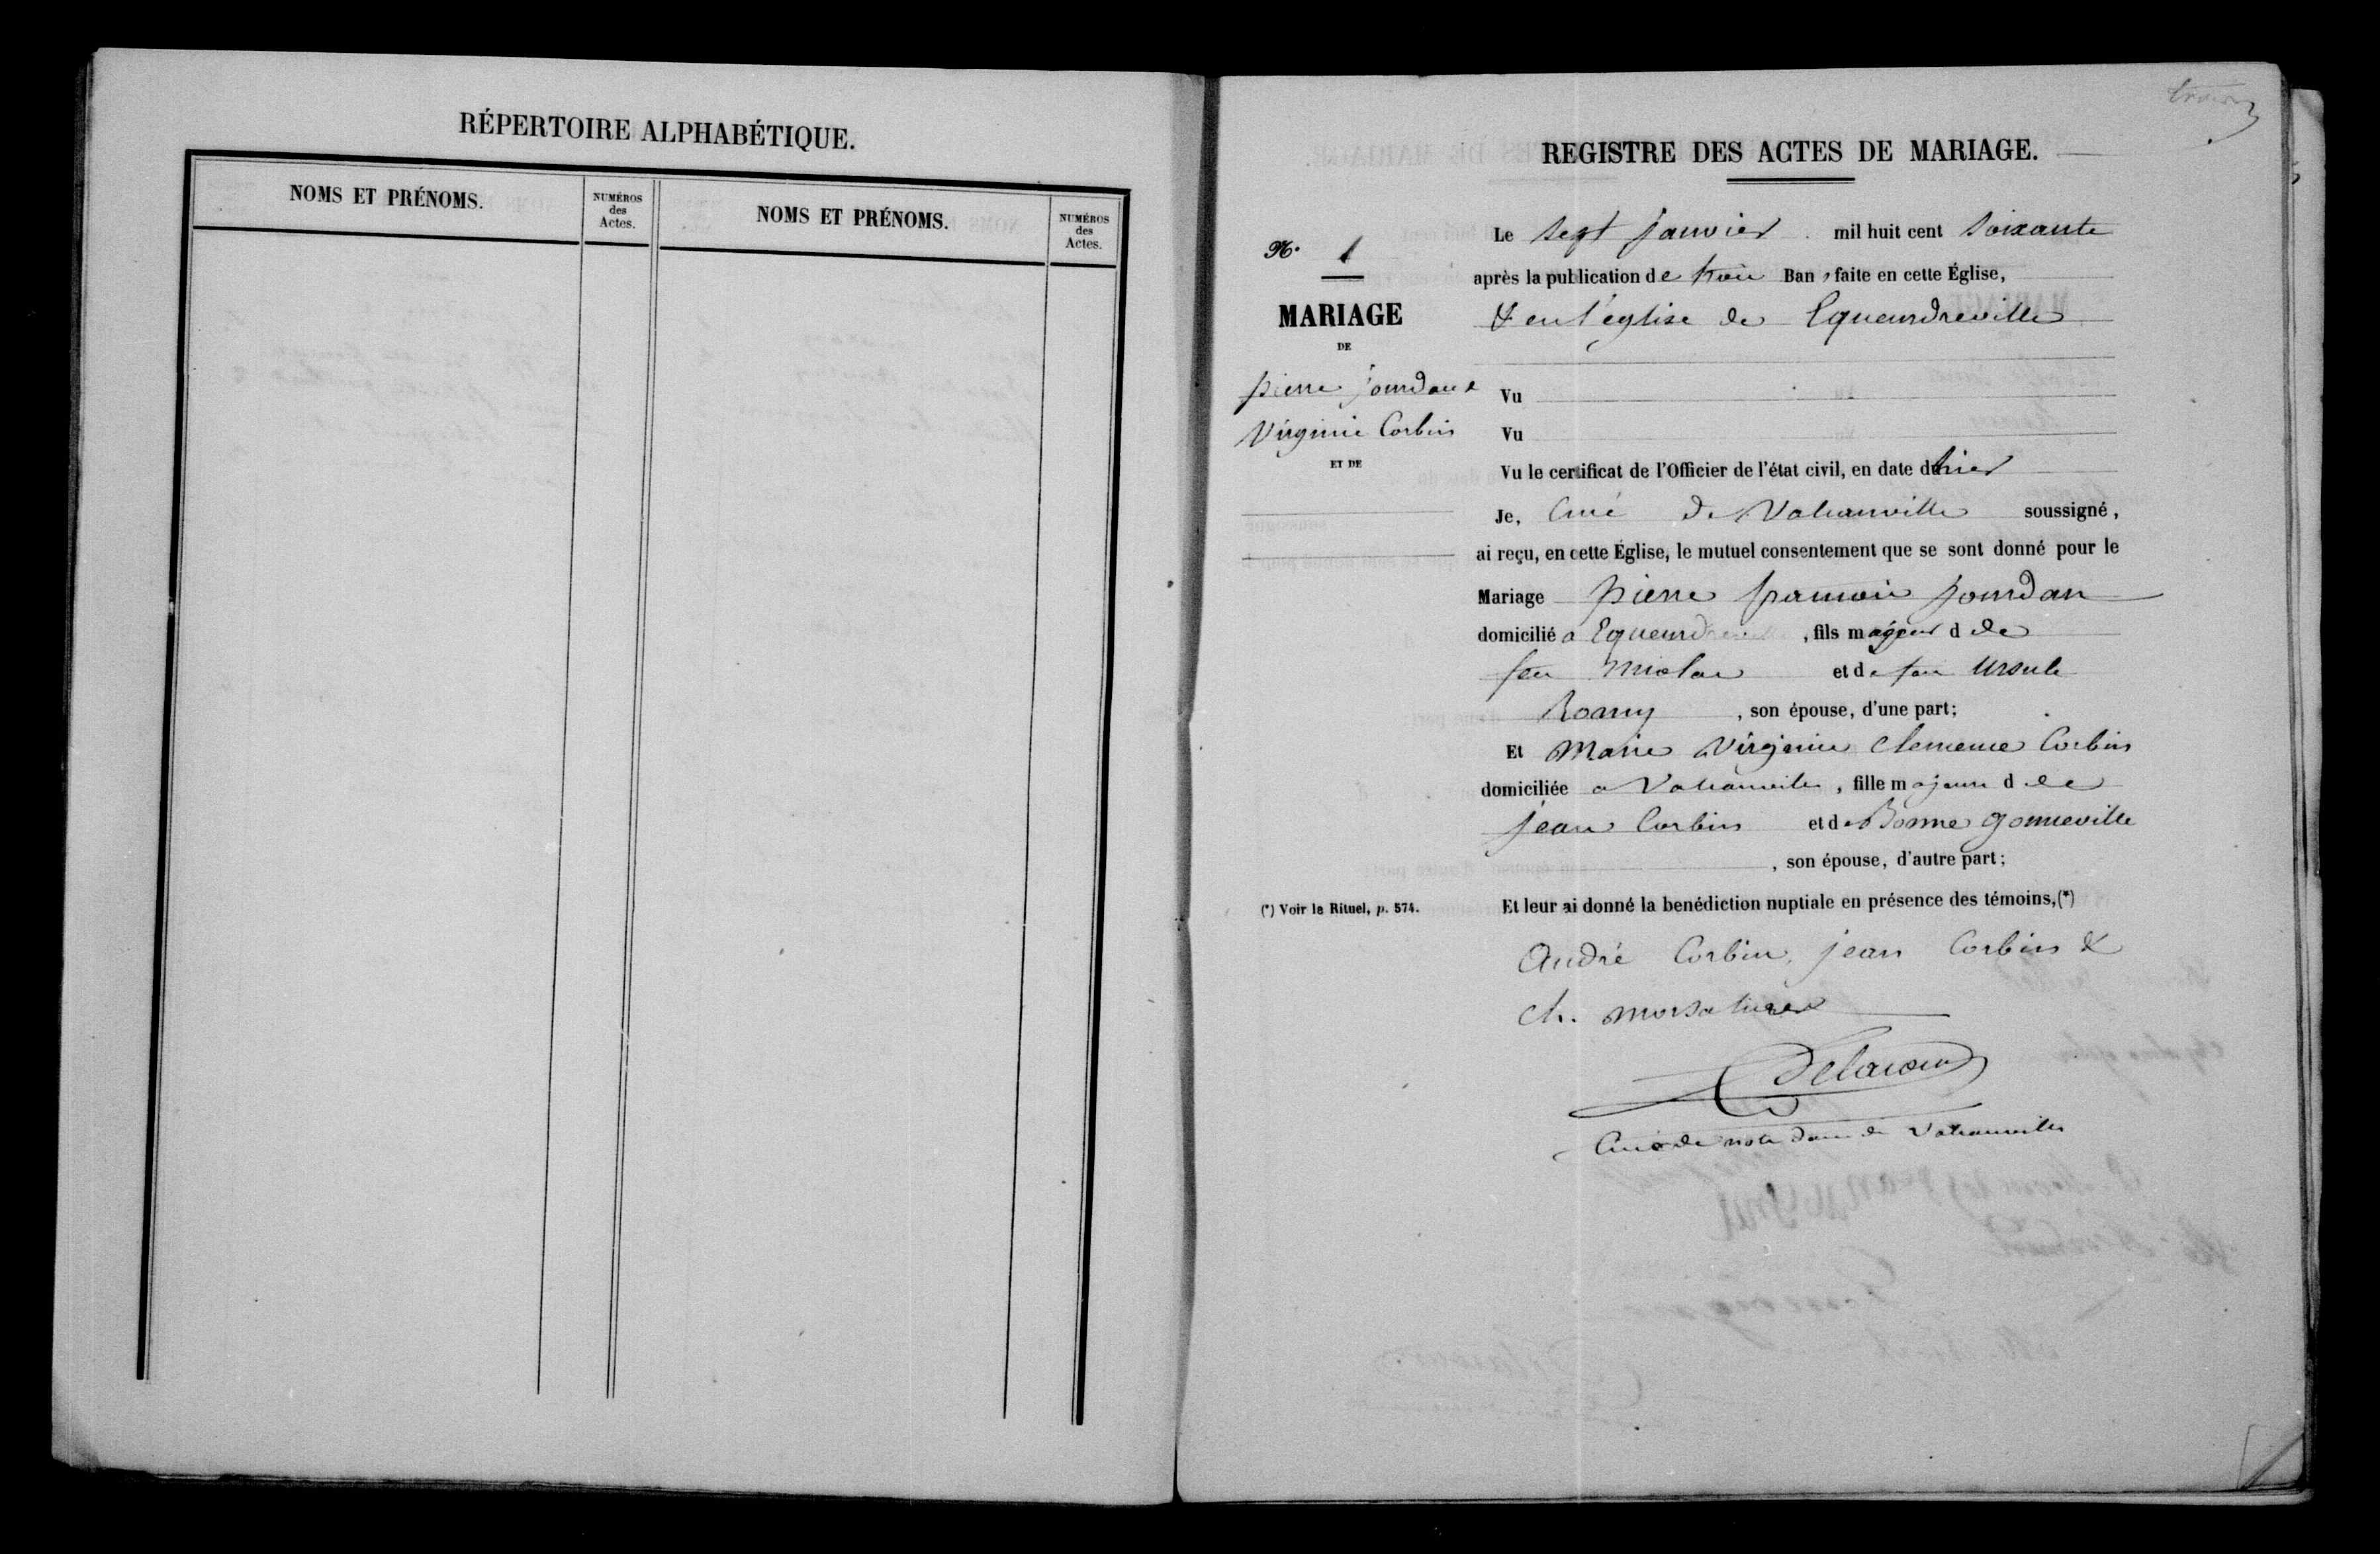 RÉPERTOIRE ALPHABÉTIQUE.
NOMS ET PRÉNOMS.
NUMÉROS
des
Actes.
NOMS ET PRÉNOMS.
NUMÉROS
des
Actes.
REGISTRE DES ACTES DE MARIAGE.
N.º 1
MARIAGE
DE
pierre jourdan &
Virginie Corbin
ET DE
(*) Voir le Rituel, p. 574.
Le sept janvier mil huit cent soixante
après la publication de trois Bans faite en cette Église,
& en l'église de Equeurdreville
Vu
Vu
Vu le certificat de l'Officier de l'état civil, en date du hier
Je, Curé de Vatrauville soussigné,
ai reçu, en cette Église, le mutuel consentement que se sont donné pour le
Mariage pierre francois jourdan
domicilié a Equeurdreville, fils majeur d de
feu et de feu Ursule
Romy, son épouse, d'une part;
Et Marie Virginie Clemence Corbin
domiciliée a Vatrauville, fille majeure d de
jean Corbin et de Bonne Gonneville
, son épouse, d'autre part;
Et leur ai donné la benédiction nuptiale en présence des témoins,(*)
André Corbin, jean Corbin &
ch. morsalines
Delacour
Curé de notre dame de Vatrauville